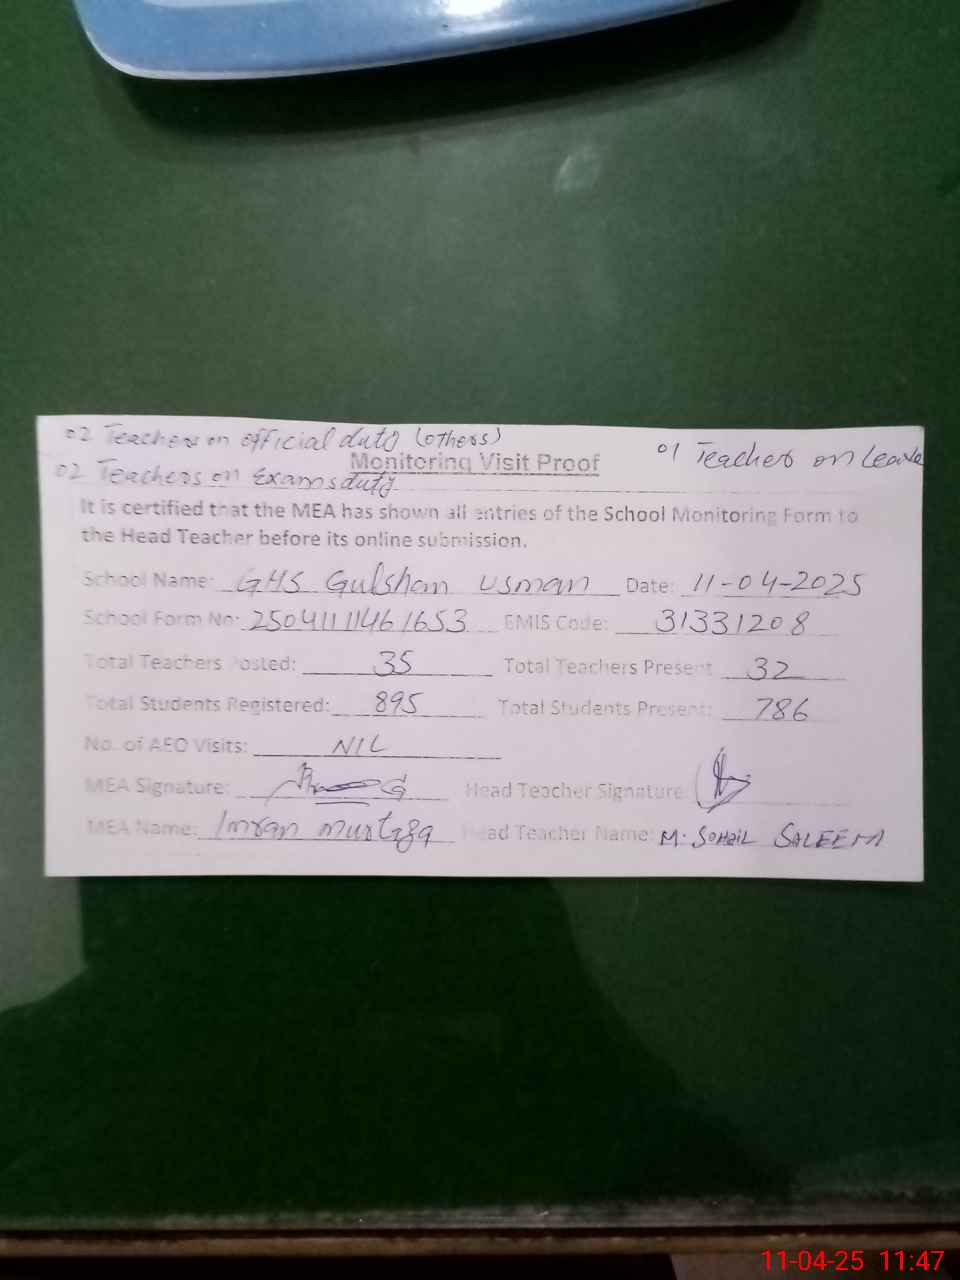 02 Teachers on official duty (others)
01 Teacher on Leave
Monitoring Visit Proof
02 Teachers on Exams duty
It is certified that the MEA has shown all entries of the School Monitoring Form to
the Head Teacher before its online submission.
School Name: GHS Gulshan Usman Date: 11-04-2025
School Form No: 25041111461653 EMIS Code: 31331208
Total Teachers Posted: 35 Total Teachers Present 32
Total Students Registered: 895 Total Students Present: 786
No. of AEO Visits: NIL
MEA Signature: Head Teacher Signature:
MEA Name: Imran murtaza Head Teacher Name: M. SOHAIL SALEEM
11-04-25 11:47